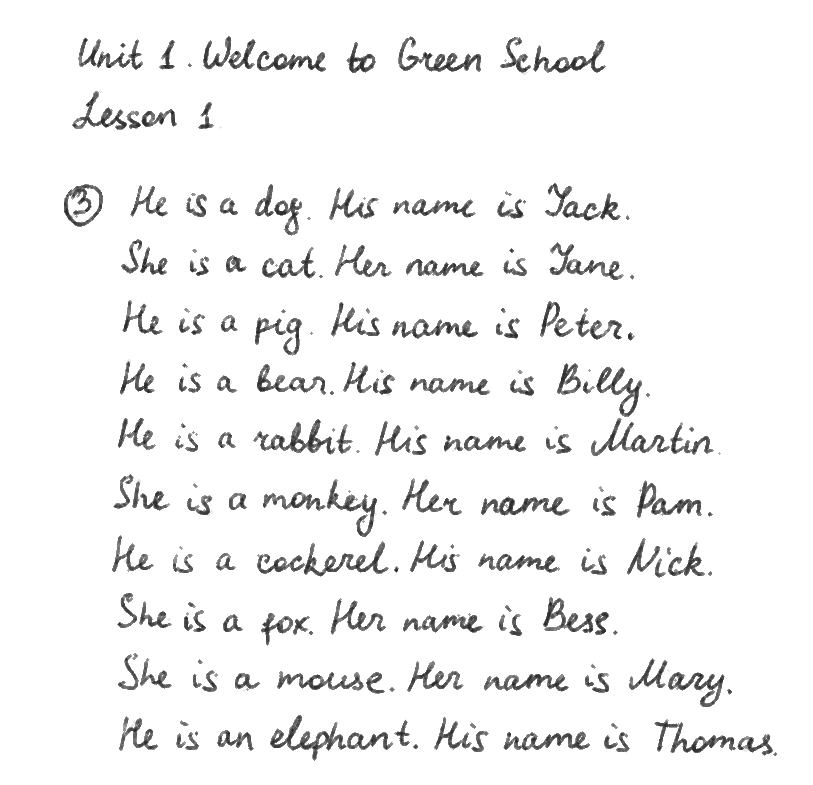 Unit 1. Welcome to Green School
Lesson 1
③ He is a dog. His name is Jack.
She is a cat. Her name is Jane.
He is a pig. His name is Peter.
He is a bear. His name is Billy.
He is a rabbit. His name is Martin.
She is a monkey. Her name is Pam.
He is a cockerel. His name is Nick.
She is a fox. Her name is Bess.
She is a mouse. Her name is Mary.
He is an elephant. His name is Thomas.